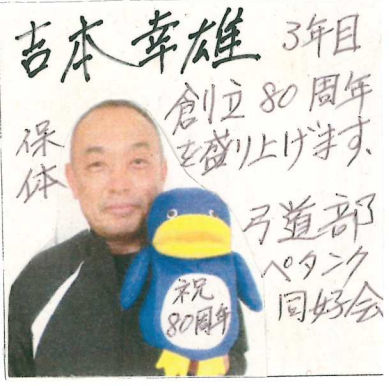 吉本幸雄 3年目
保体
創立80周年
を盛り上げます、
弓道部
ペタンク
同好会
祝
80周年